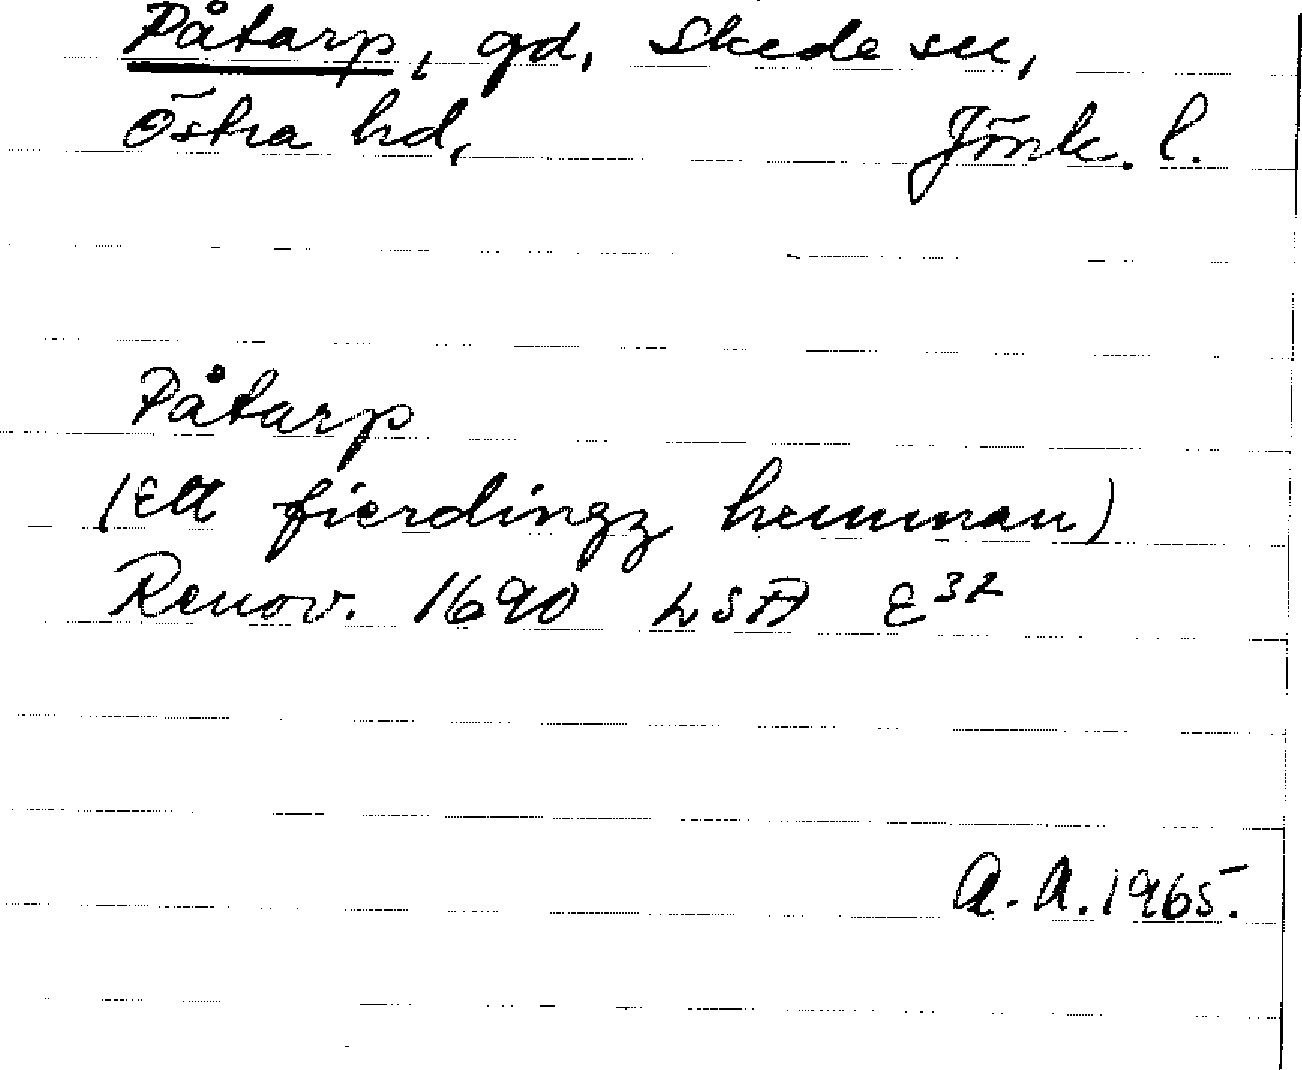 Påtarp, gd, Skede sn,
Östra hd, Jönk. l.
Påtarp
(Ett fierdingz hemman)
Renov. 1690 LSA E32
A.A. 1965.